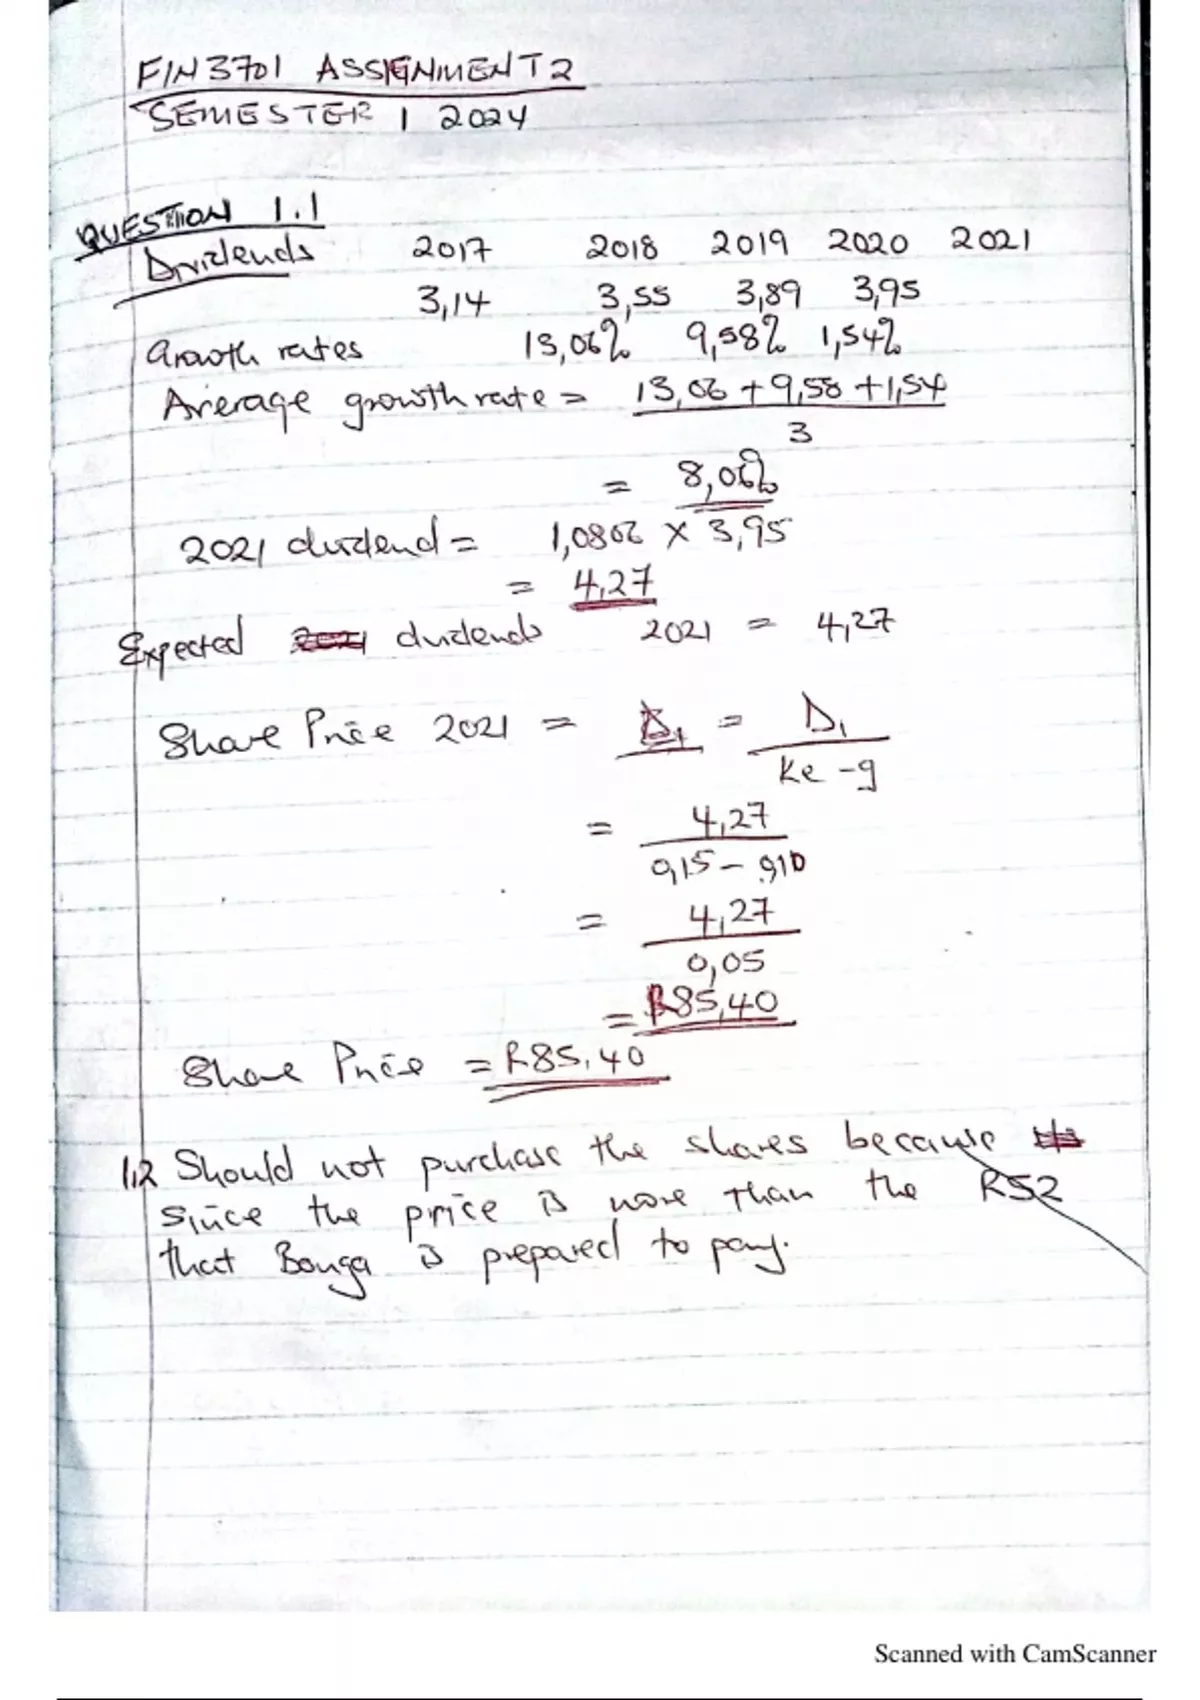 FIN3701 ASSIGNMENT 2
SEMESTER 1 2024
QUESTION 1.1
Dividends 2017 2018 2019 2020 2021
3,14 3,55 3,89 3,95
Growth rates 13,06% 9,58% 1,54%
Average growth rate = 13,06 + 9,58 + 1,54
3
= 8,06%
2021 dividend = 1,0806 x 3,95
= 4,27
Expected 2021 dividends 2021 = 4,27
Share Price 2021 = D1 = D1
Ke - g
= 4,27
0,15 - 0,10
= 4,27
0,05
= R85,40
Share Price = R85,40
1.2 Should not purchase the shares because
since the price is more than the R52
that Bonga is prepared to pay.
Scanned with CamScanner